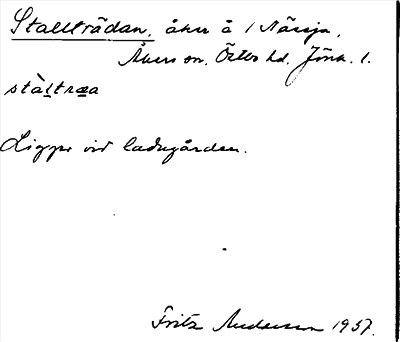 Stallträdan, åker å 1 Nässja,
Åkers sn. Östbo hd. Jönk. l.
stàltræa
Ligger vid ladugården.
Fritz Anderson 1937.